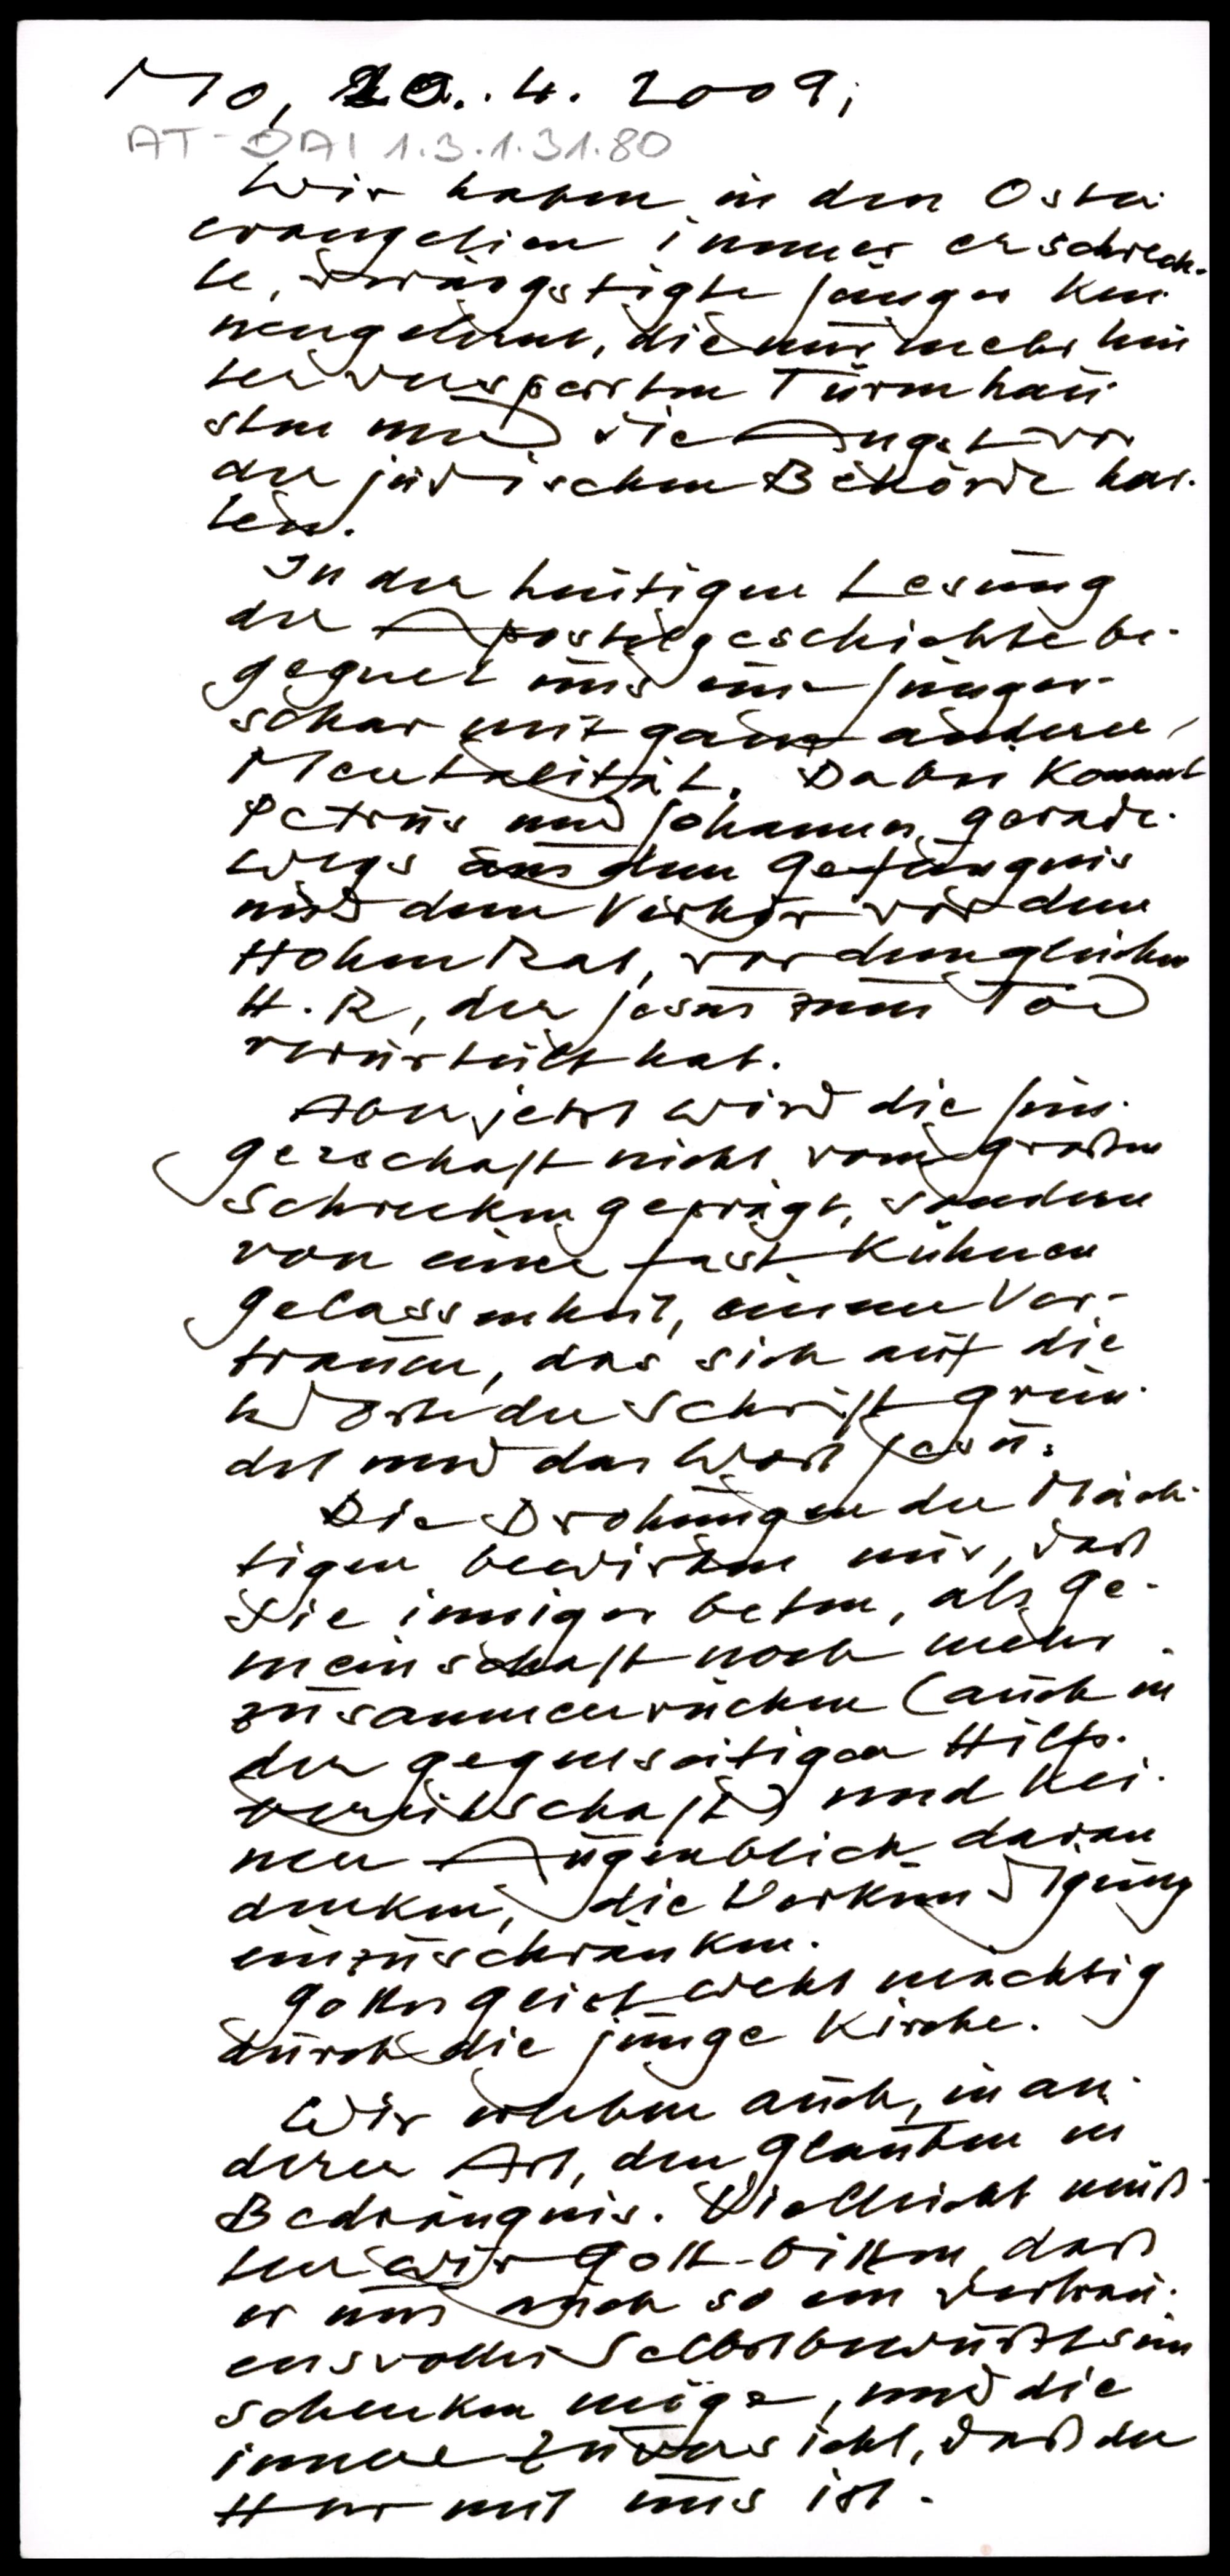 Mo, 20. 4. 2009;
AT-DAI 1.3.1.31.80
Wir haben in den Oster-
evangelien immer erschreck-
te, verängstigte Jünger ken-
nengelernt, die nunmehr hin
ter versperrten Türen hau-
sten und die Angst vor
der jüdischen Behörde hat-
ten.
In der heutigen Lesung
der Apostelgeschichte be-
gegnet uns eine Jünger-
schar mit ganz anderer
Mentalität. Dabei kommt
Petrus und Johannes gerade-
wegs aus dem Gefängnis
und dem Verhör vor dem
Hohen Rat, vor dem gleichen
H. R, der Jesus zum Tod
verurteilt hat.
Aber jetzt wird die Jün-
gerschaft nicht vom großen
Schrecken geprägt, sondern
von einer fast kühnen
Gelassenheit, einem Ver-
trauen, das sich auf die
Worte der Schrift grün-
det und das Wort Jesu.
Die Drohungen der Mäch-
tigen bewirken nur, daß
sie inniger beten, als Ge-
meinschaft noch mehr
zusammenrücken (auch in
der gegenseitigen Hilfs-
bereitschaft) und kei-
nen Augenblick daran
denken, die Verkündigung
einzuschränken.
Gottes Geist weht mächtig
durch die junge Kirche.
Wir erleben auch, in an-
derer Art, den Glauben in
Bedrängnis. Vielleicht müß-
ten wir Gott bitten, daß
er uns auch so ein vertrau-
ensvolles Selbstbewußtsein
schenken möge, und die
innere Zuversicht, daß der
Herr mit uns ist.